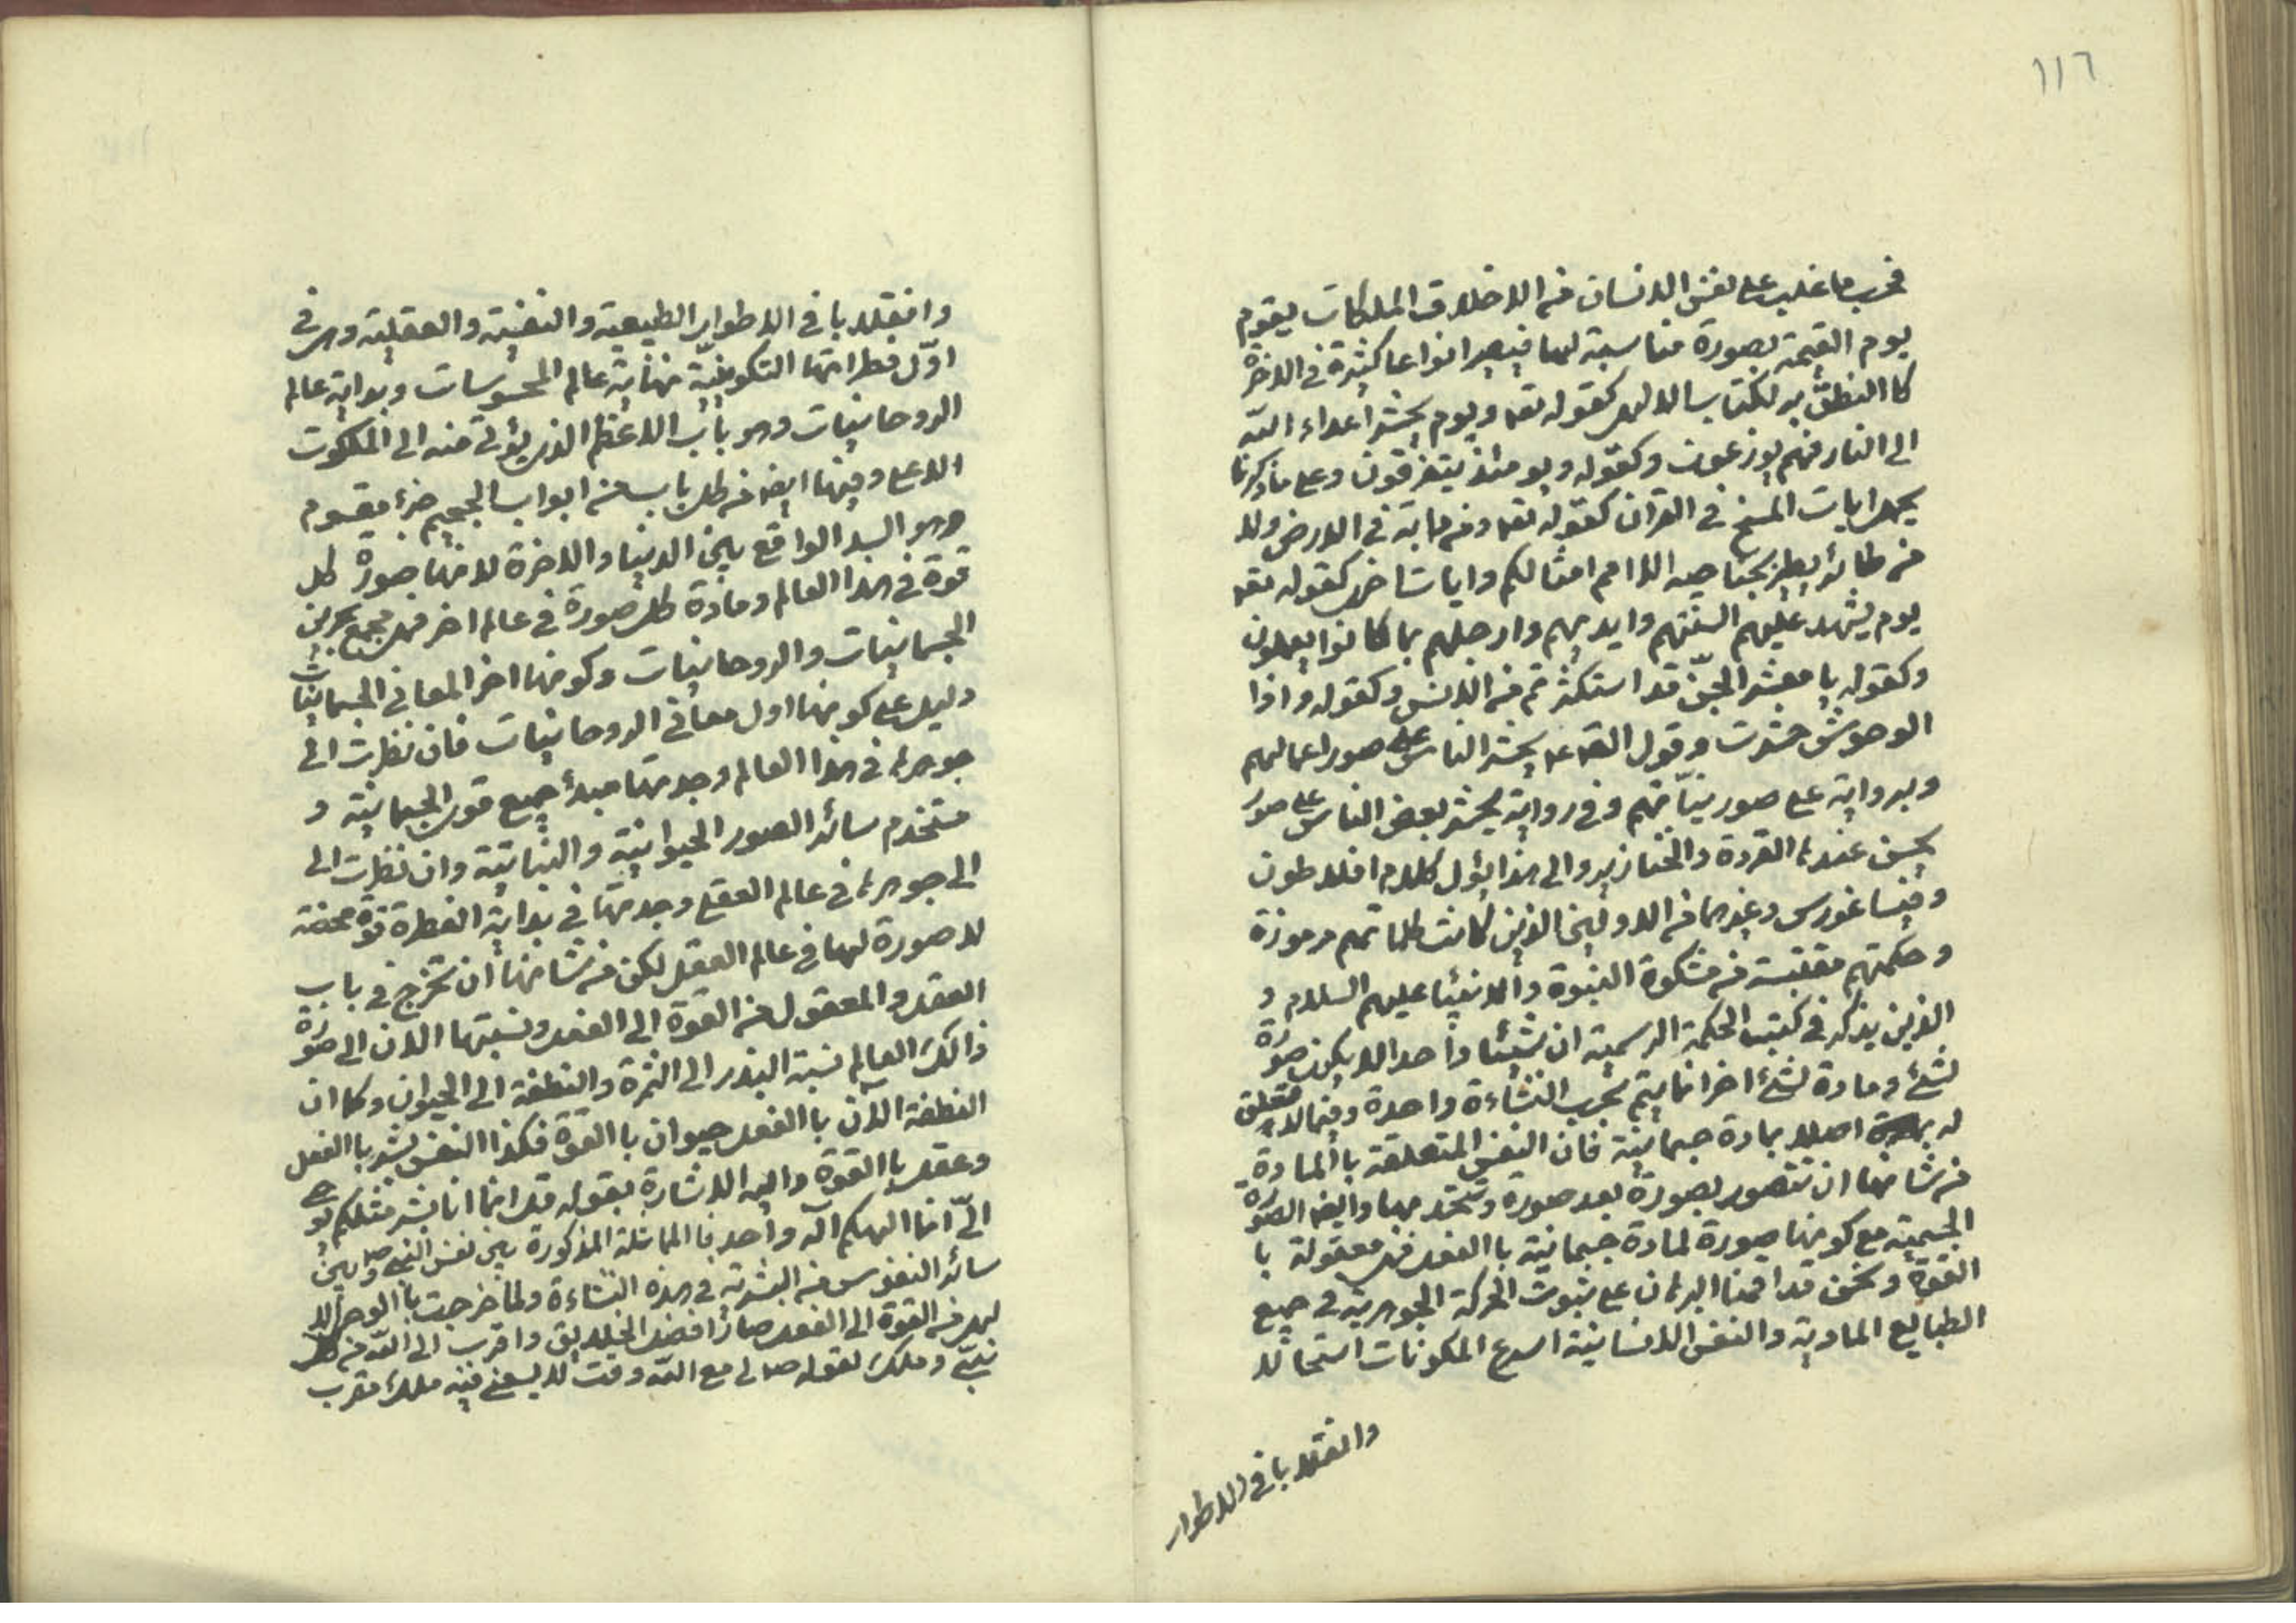 ١١٦
فحسب ما غلب على نفس الانسان من الاخلاق الملكات يقوم
يوم القيمة بصورة مناسبة لها فيصير انواعا كثيرة في الاخرة
كما النطق به لكتاب الالهى كقوله تعه ويوم يحشر اعداء الله
الى النار فهم يوزعون وكقوله ويومئذ يتفرقون وعلى ما ذكرنا
يحمل ايات المسخ في القران كقوله تعه وما من دابة في الارض ولا
من طائر يطير بجناحيه الا امم امثالكم وايات اخرى كقوله تعه
يوم يشهد عليهم السنتهم وايديهم وارجلهم بما كانوا يعملون
وكقوله يا معشر الجن قد استكثرتم من الانس وكقوله واذا
الوحوش حشرت وقول يحشر الناس على صور اعمالهم
وبرواية على صور نياتهم وفي رواية يحشر بعض الناس على صور
يحسن عندها القردة والخنازير والى هذا يؤل كلام افلاطون
وفيساغورس وغيرهما من الاولين الذين كانت كلماتهم مرموزة
وحكمتهم مقتبسة من مشكوة النبوة والانبيا عليهم السلام و
الذين يذكر في كتب الحكمة الرسمية ان شيئا واحدا لا يكون صورة
لشئ ومادة لشئ اخر انما يتم بحسب النشاءة واحدة وفيما لا تعلق
له اصلا بمادة جسمانية فان النفس المتعلقة با المادة
من شانها ان تتصور بصورة بعد صورة وتتحد بها وايضا الصورة
الجسمية مع كونها صورة لمادة جسمانية با الفعل فهى معقولة با
القوة ونحن قد اقمنا البرهان على ثبوت الحركة الجوهرية في جميع
الطبايع المادية والنفس الانسانية اسرع المكونات استحالا
وانقلابا في الاطوار
وانقلابا في الاطوار الطبيعية والنفسية والعقلية وهى في
اوّل فطراتها التكوينيّة نهاية عالم المحسوسات وبداية عالم
الروحانيات وهو باب الاعظم الذى يؤتى منه الى الملكوت
الاعلى وفيها ايضا من كل باب من ابواب الجحيم جزء مقسوم
وهو السد الواقع بين الدنيا والاخرة لانها صورة كل
قوة في هذا العالم ومادة كل صورة في عالم اخر فهى مجمع بحرين
الجسمانيات والروحانيات وكونها اخر المعانى الجسمانيات
دليل على كونها اول معانى الروحانيات فان نظرت الى
جوهرها في هذا العالم وجدتها مبدأ جميع قوى الجسمانية و
مستخدم سائر الصور الحيوانية والنباتية وان نظرت الى
الى جوهرها في عالم العقلى وجدتها في بداية الفطرة قوة محضة
لا صورة لها في عالم العقل لكن من شانها ان تخرج في باب
العقل والمعقول من القوة الى الفعل ونسبتها الان الى صورة
ذالك العالم نسبة البذر الى الثمرة والنطفة الى الحيوان وكما ان
النطفة الآن با الفعل حيوان با القوة فكذا النفس بشر با الفعل
وعقل با القوة واليه الاشارة بقوله قل انما انا بشر مثلكم يوحى
الىّ انما الهكم آله واحد فا المماثلة المذكورة بين نفس النبى ص وبين
سائر النفوس من البشرية في هذه النشاءة ولما خرجت با الوحى الا
لهى من القوة الى الفعل صار افضل الخلايق واقرب الى الله من كل
نبىّ وملك لقوله ص لى مع الله وقت لا يسعنى فيه ملك مقرب